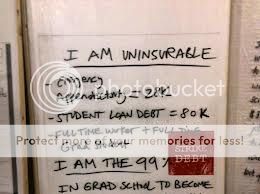 I AM UNINSURABLE
- EMERGENCY
APPENDECTOMY = 28K
- STUDENT LOAN DEBT = 80K
- FULL TIME WORKER + FULL TIME
GRAD STUDENT
I AM THE 99%
IN GRAD SCHOOL TO BECOME
STRIKE
DEBT
photobucket
Protect more of your memories for less!